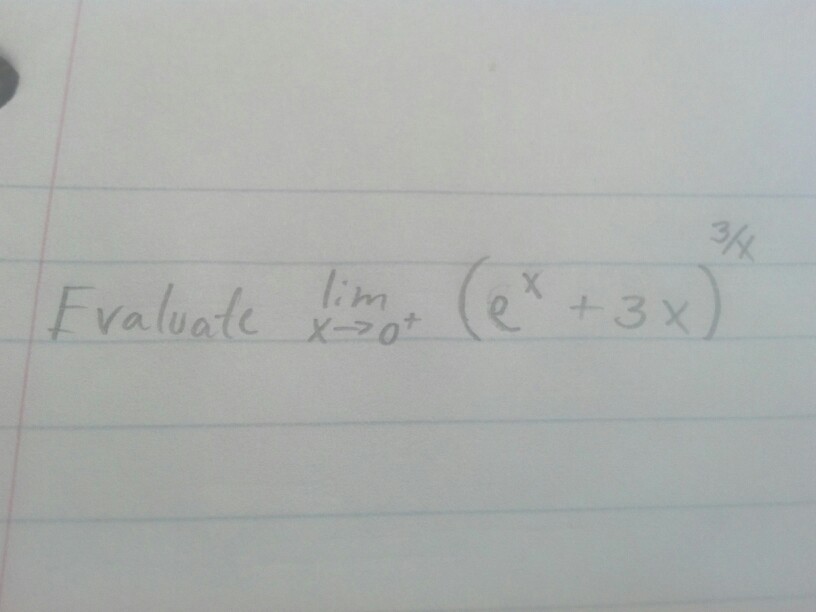 Evaluate lim x→0⁺ (eˣ + 3x)^(3/x)